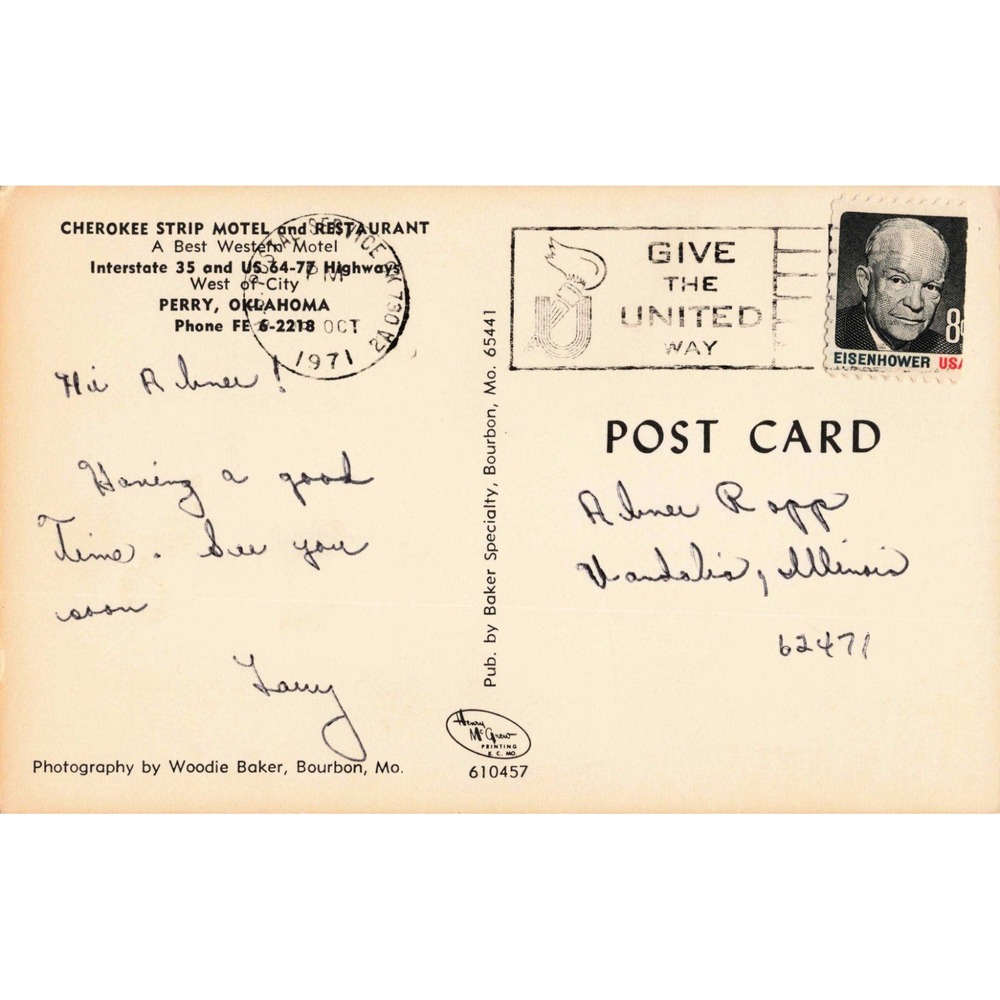 CHEROKEE STRIP MOTEL and RESTAURANT
A Best Western Motel
Interstate 35 and US 64-77 Highways
West of City
PERRY, OKLAHOMA
Phone FE 6-2218
POSTAL SERVICE OK 730
PM
OCT
1971
GIVE
THE
UNITED
WAY
8
EISENHOWER USA
Hi Abner!
Having a good
Time. See you
soon
Larry
Photography by Woodie Baker, Bourbon, Mo.
Pub. by Baker Specialty, Bourbon, Mo. 65441
Henry
McGrew
PRINTING
K. C. MO.
610457
POST CARD
Abner Rapp
Vandalia, Illinois
62471